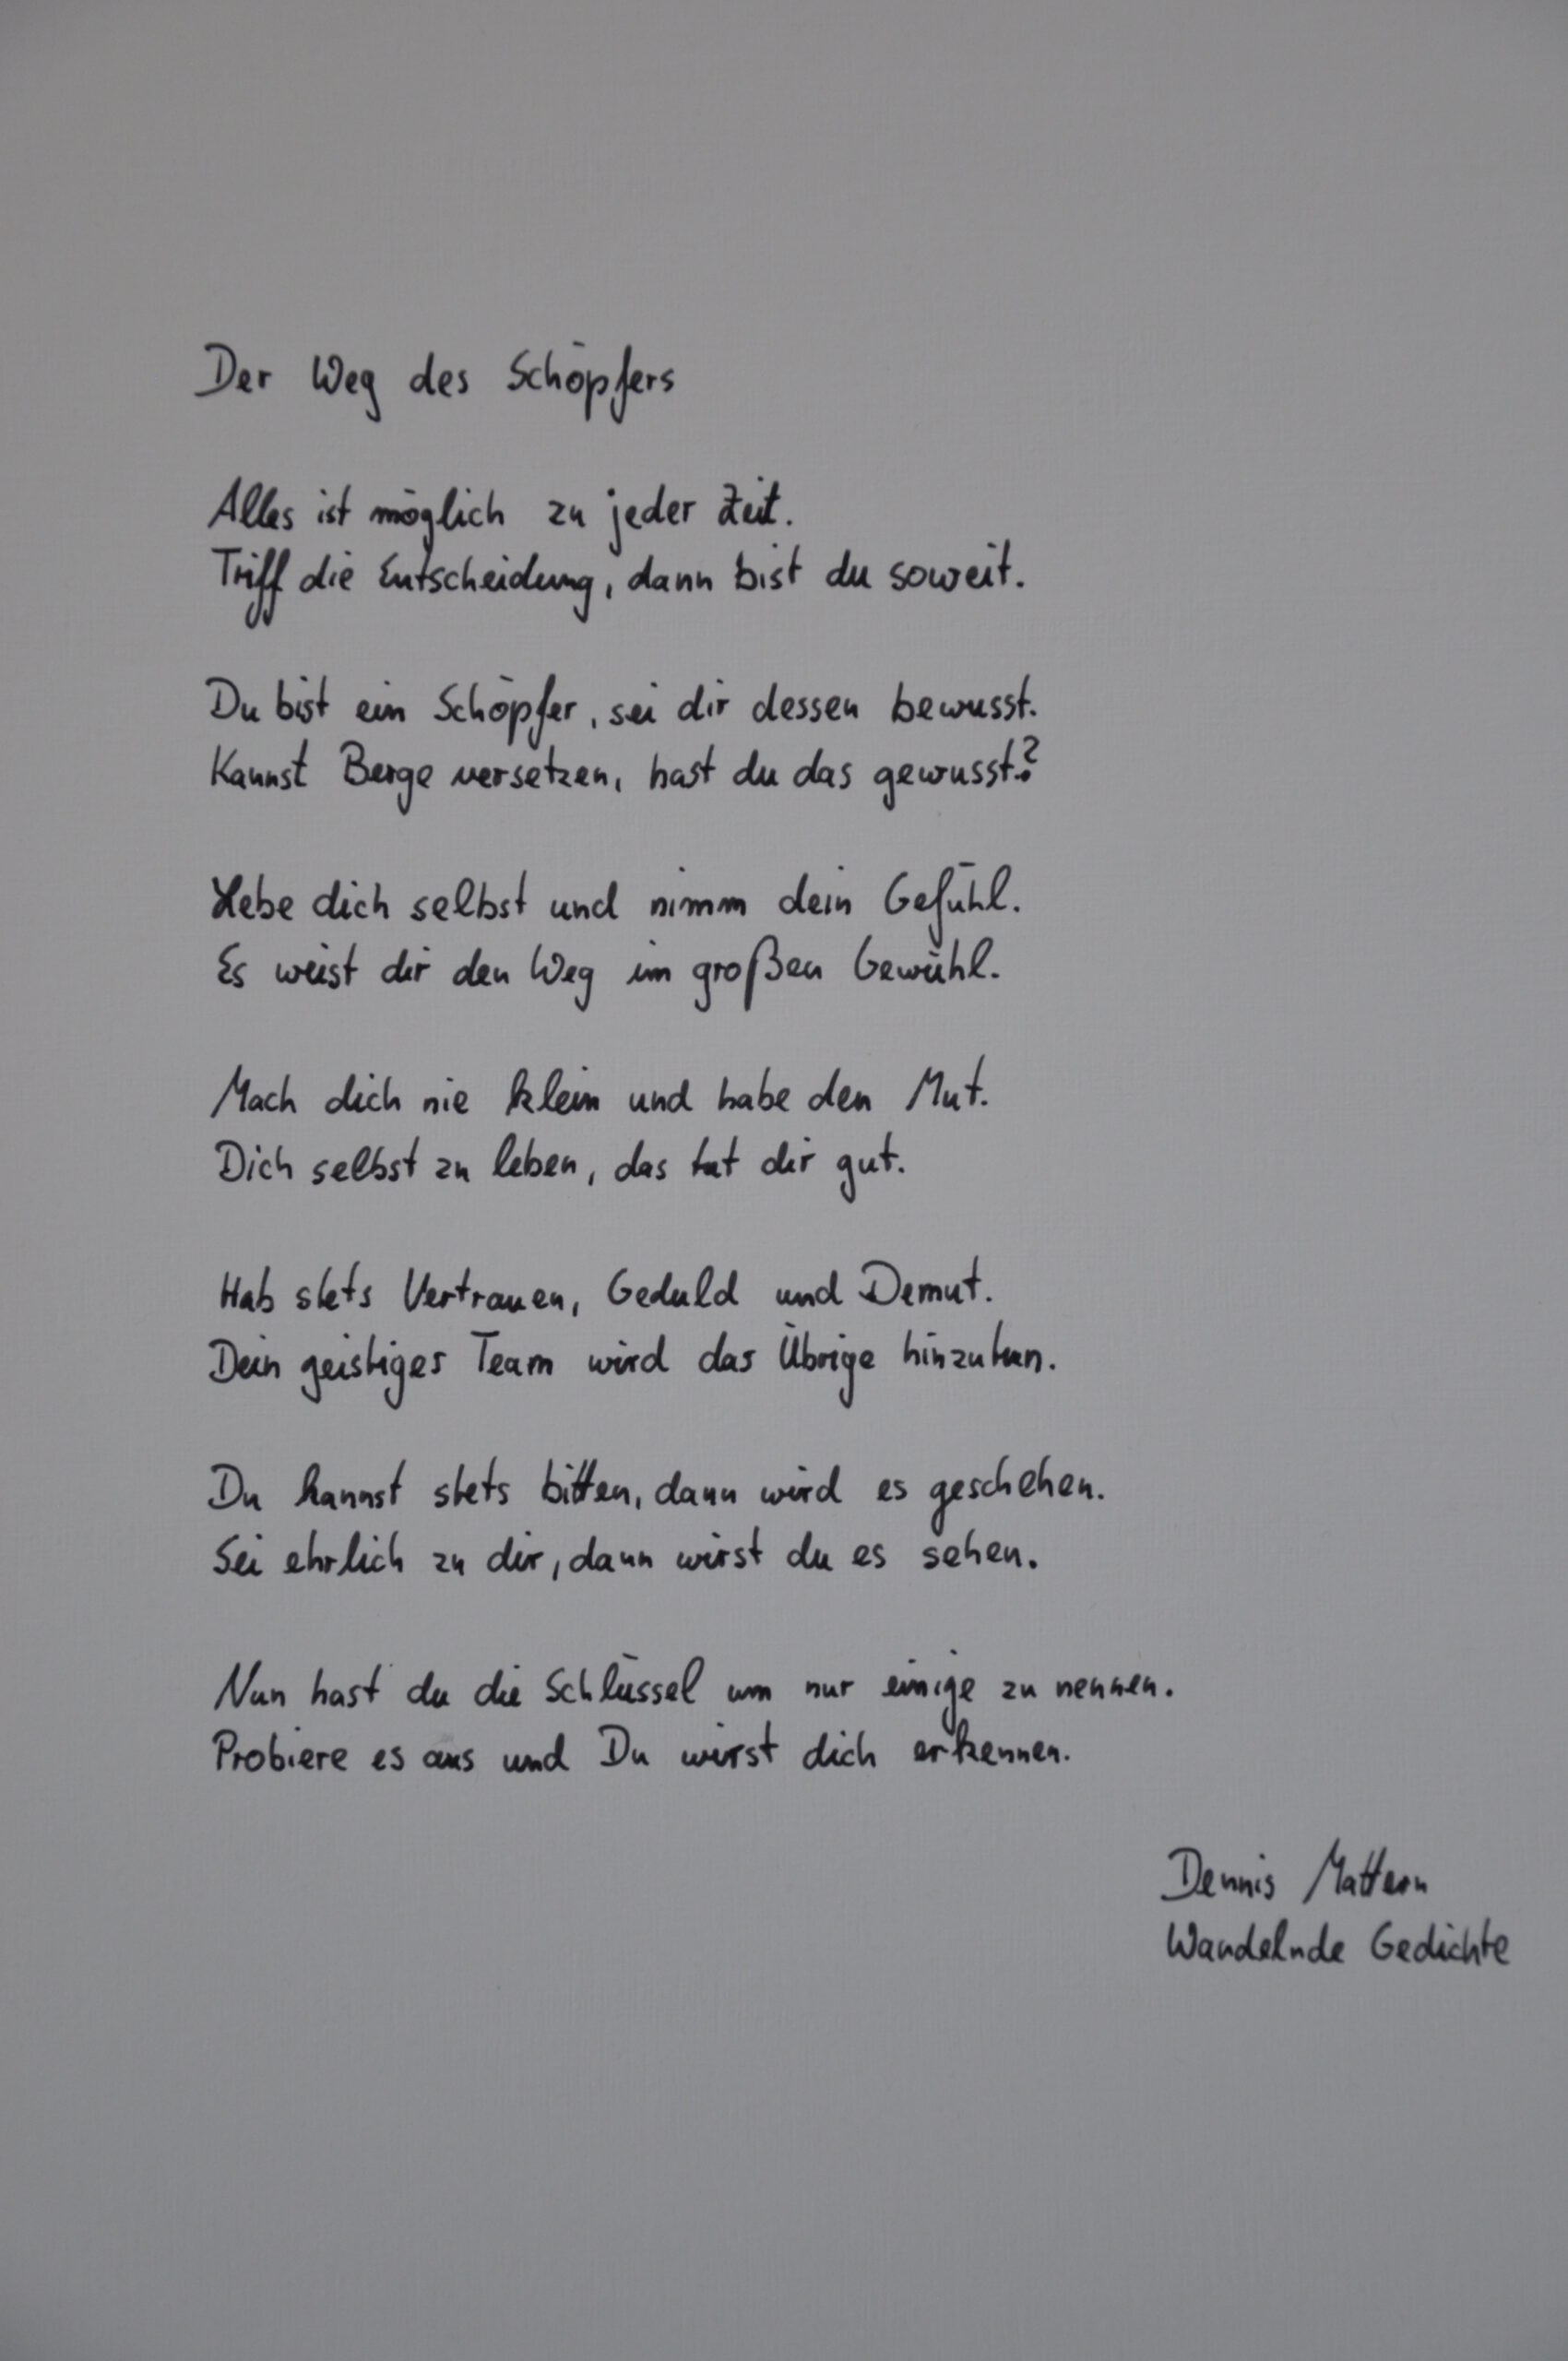 Der Weg des Schöpfers
Alles ist möglich zu jeder Zeit.
Triff die Entscheidung, dann bist du soweit.
Du bist ein Schöpfer, sei dir dessen bewusst.
Kannst Berge versetzen, hast du das gewusst?
Liebe dich selbst und nimm dein Gefühl.
Es weist dir den Weg im großen Gewühl.
Mach dich nie klein und habe den Mut.
Dich selbst zu leben, das tut dir gut.
Hab stets Vertrauen, Geduld und Demut.
Dein geistiges Team wird das Übrige hinzutun.
Du kannst stets bitten, dann wird es geschehen.
Sei ehrlich zu dir, dann wirst du es sehen.
Nun hast du die Schlüssel um nur einige zu nennen.
Probiere es aus und Du wirst dich erkennen.
Dennis Mattern
Wandelnde Gedichte